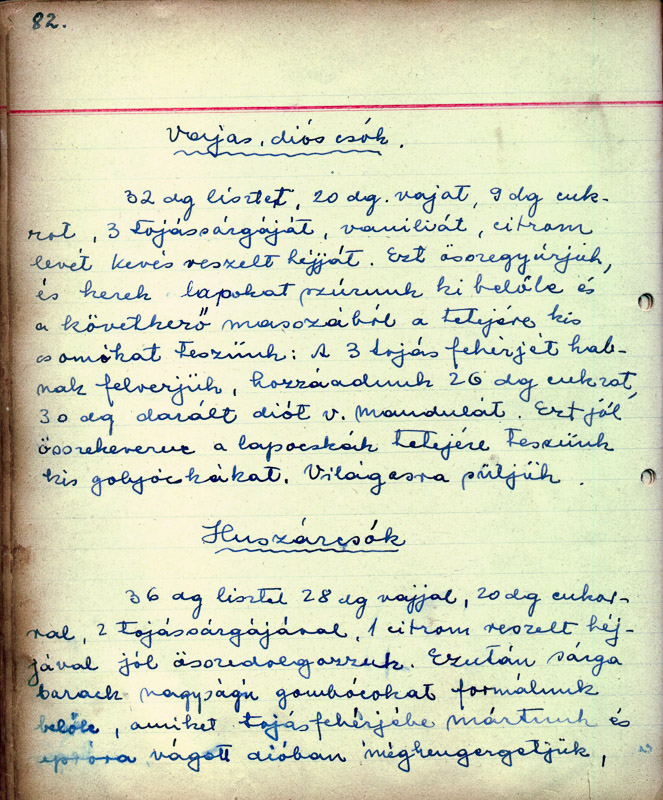 82.
Vajas, diós csók.
32 dg lisztet, 20 dg. vajat, 9 dg cuk-
rot, 3 tojássárgáját, vaniliát, citrom
levét kevés reszelt héjját. Ezt összegyúrjuk,
és kerek lapokat szúrunk ki belőle és
a következő masszából a tetejére kis
csomókat teszünk: A 3 tojás fehérjét hab-
nak felverjük, hozzáadunk 26 dg cukrot,
30 dg darált diót v. mandulát. Ezt jól
összekeverve a lapocskák tetejére teszünk
kis golyóckákat. Világosra sütjük.
Huszárcsók
36 dg lisztet 28 dg vajjal, 20 dg cukor-
ral, 2 tojássárgájával, 1 citrom reszelt héj-
jával jól összedolgozzuk. Ezután sárga
barack nagyságú gombócokat formálunk
belőle, amiket tojásfehérjébe mártunk és
apróra vágott dióban méghengergetjük,